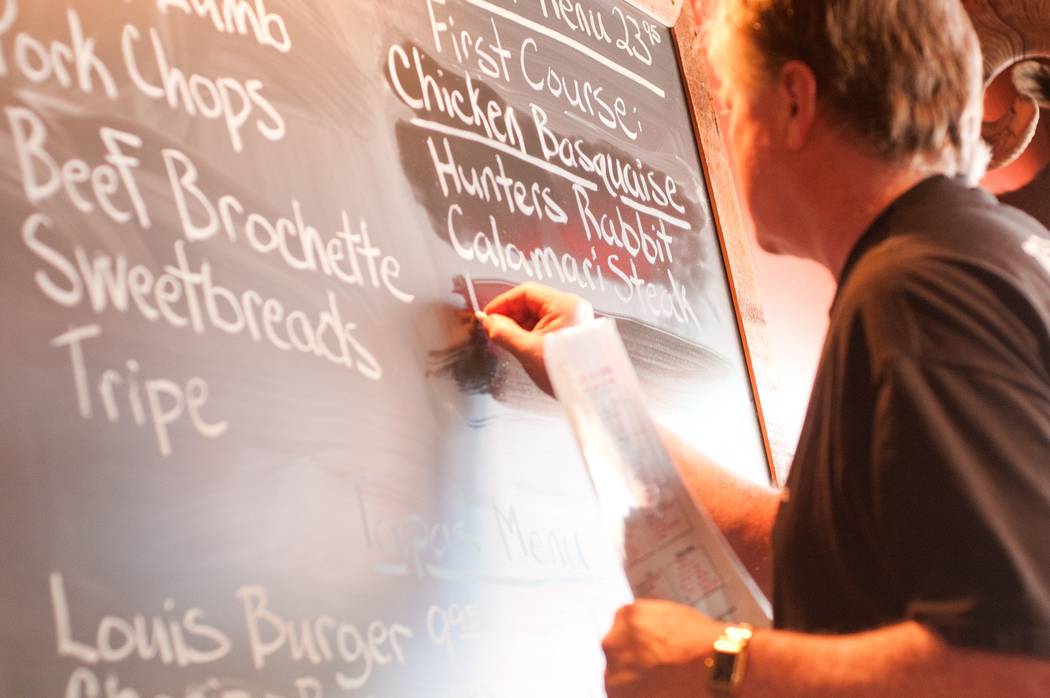 Lamb
Pork Chops
Beef Brochette
Sweetbreads
Tripe
Menu 23⁹⁵
First Course:
Chicken Basquaise
Hunters Rabbit
Calamari Steak
Tapas Menu
Louis Burger 9⁹⁵